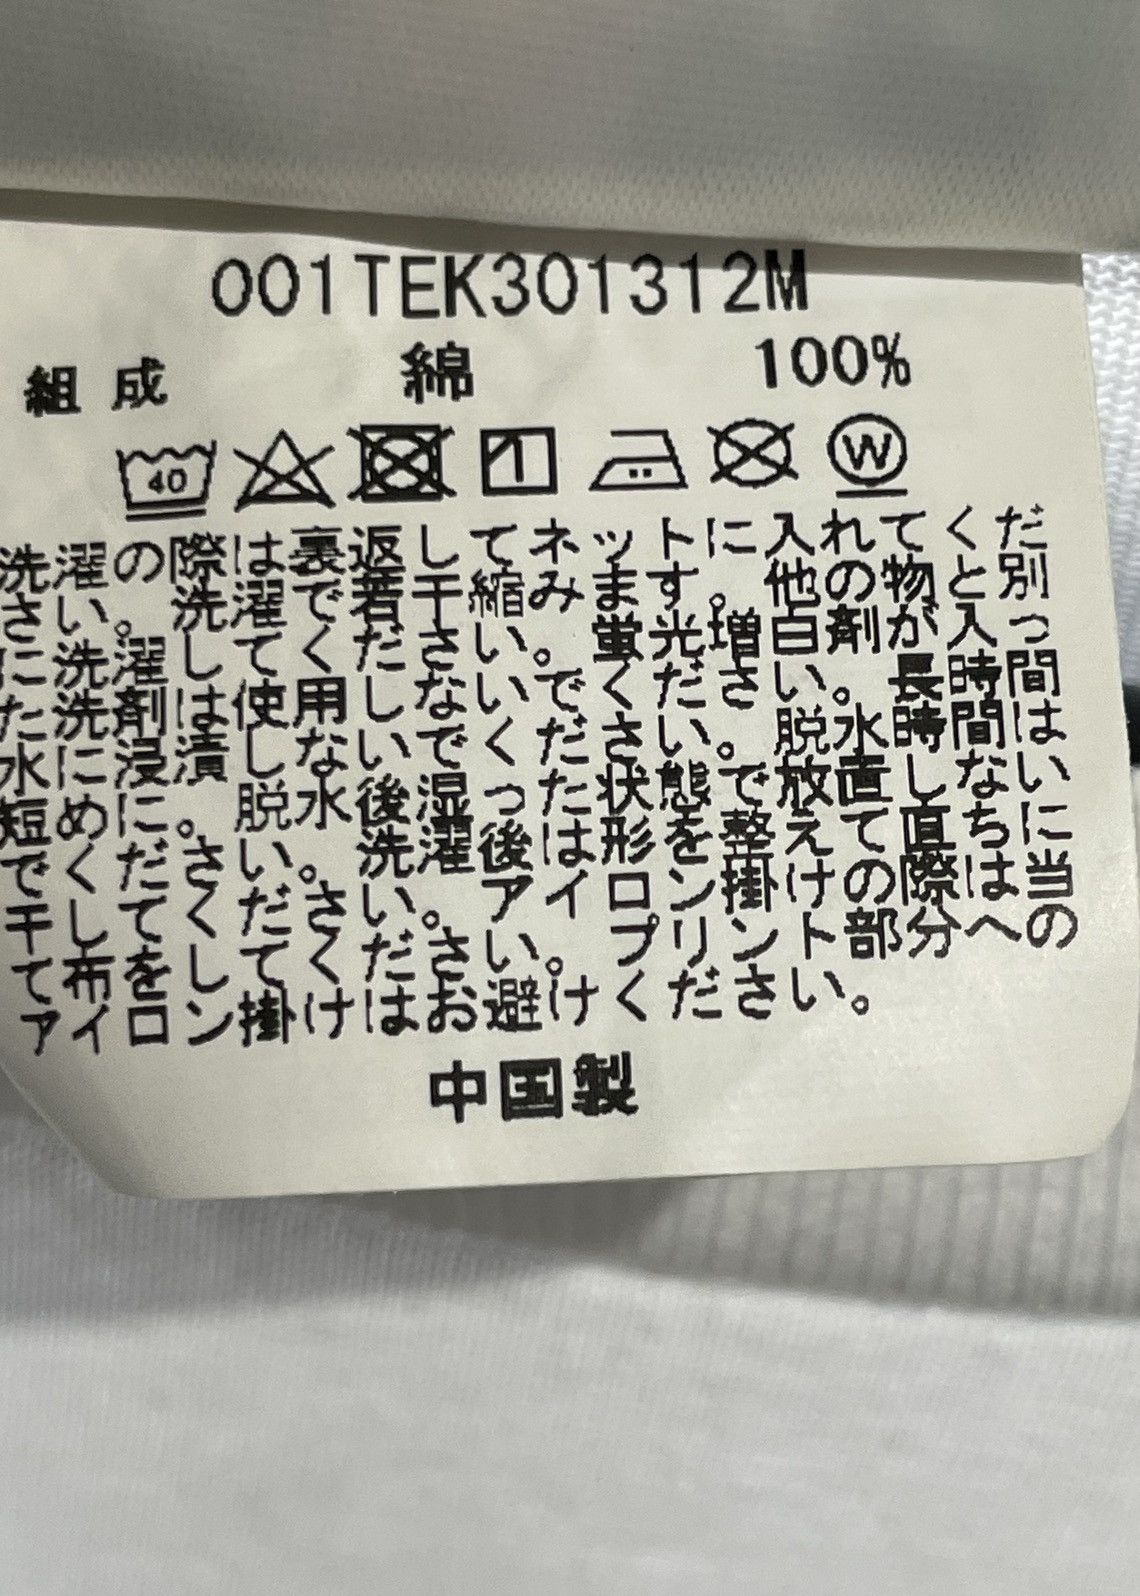 001TEK301312M
組成 綿 100%
40 W
洗濯の際は裏返してネットに入れてくだ
さい。洗濯で若干縮みます。他の物と別
に洗濯してください。蛍光増白剤が入っ
た洗剤は使用しないでください。長時間
水に浸漬しないでください。脱水時間は
短めに。脱水後湿った状態で放置しない
でください。洗濯後は形を整えて直ちに
干してください。アイロン掛けの際は当
て布をしてください。プリント部分への
アイロン掛けはお避けください。
中国製